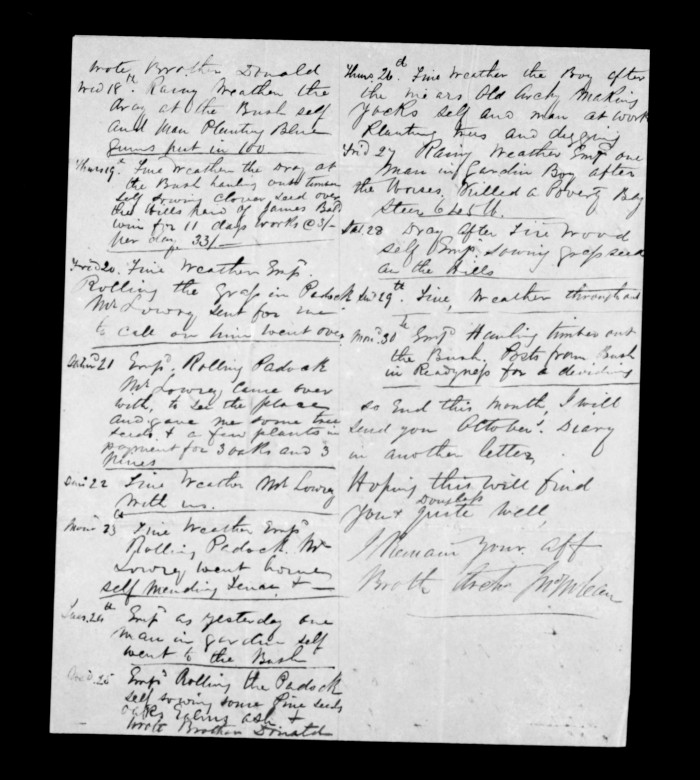 wrote Brother Donald
Wed 18th Rainy Weather the
dray at the Bush self
and Man Planting Blue
Gums put in 100
Thurs 19th Fine Weather the Dray at
the Bush hauling out timber
self sowing clover seed over
the Hills paid of James Bald
win for 11 days works @ 3/-
per day 33/-
Frid 20. Fine Weather Empd.
Rolling the Grass in Padock
Mr Lowry sent for me
to call on him went over
21 Empd, Rolling Padock
Mr Lowrey came over
with, to see the place
and gave me some tree
seeds & a few plants in
payment for 3 oaks and 3
Pines
22 Fine Weather Mr Lowry
with us.
Mon 23d Fine Weather Empd
Rolling Padock. Mr
Lowrey went home
self Mending Fence &
Tues. 24th Empd as yesterday one
man in garden self
went to the Bush
25 Empd Rolling the Padock
self sowing some Pine seeds
oaks ash &
wrote Brother Donald
Thurs. 26th Fine Weather the Boy after
the mears Old Archy Making
Yocks self and man at work
Planting trees and digging
Frid 27 Rainy Weather Empd one
Man in gardin Boy after
the Horses. Killed a Poverty Bay
Steer 645 lb.
Sat 28 Dray after Fire Wood
self Empd. Sowing grass seed
on the Hills
29th. Fine, Weather throughout
Mon. 30th Empd Hauling timber out
the Bush. Posts from Bush
in Readyness for a dividing
so End this month, I will
send you October's. Diary
in another letter,
Hoping this will find
Douglass
you & quite well,
I Remain Your aff
Broth Archd McLean